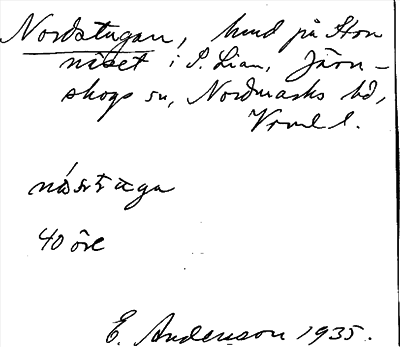 Nordstugan, hmd på Stor
näset i S. Lian, Järn-
skogs sn, Nordmarks hd,
Vrml l.
40 öre
E. Anderson 1935.